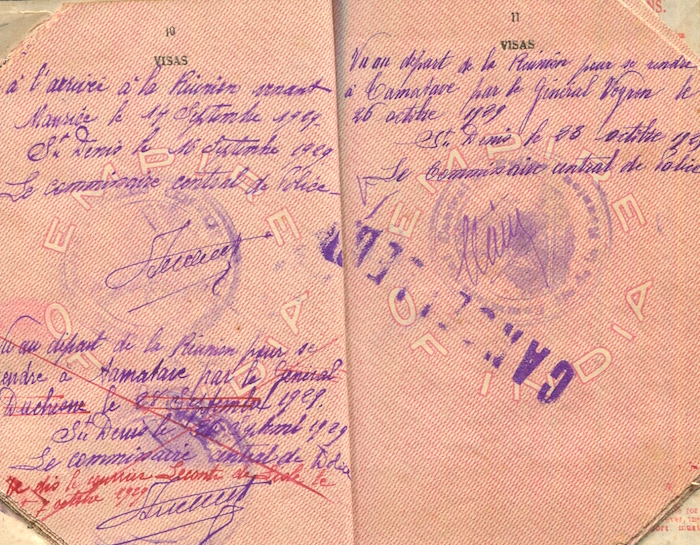 10
VISAS
à l'arrivée à la Réunion venant
Maurice le 14 Septembre 1929
St Denis le 16 Septembre 1929
Le commissaire central de Police
EMPIRE OF INDIA
Vu au départ de la Réunion pour se
rendre à Tamatave par le General
Duchesne le Septembre 1929.
St Denis le 1929
Le commissaire central de Police
courrier Leconte de Lisle le
7 octobre 1929
11
VISAS
Vu au départ de la Réunion pour se rendre
à Tamatave par le Général Voyron le
26 octobre 1929
St Denis le 23 octobre 192
Le Commissaire central de Police
EMPIRE OF INDIA
CANCELLED